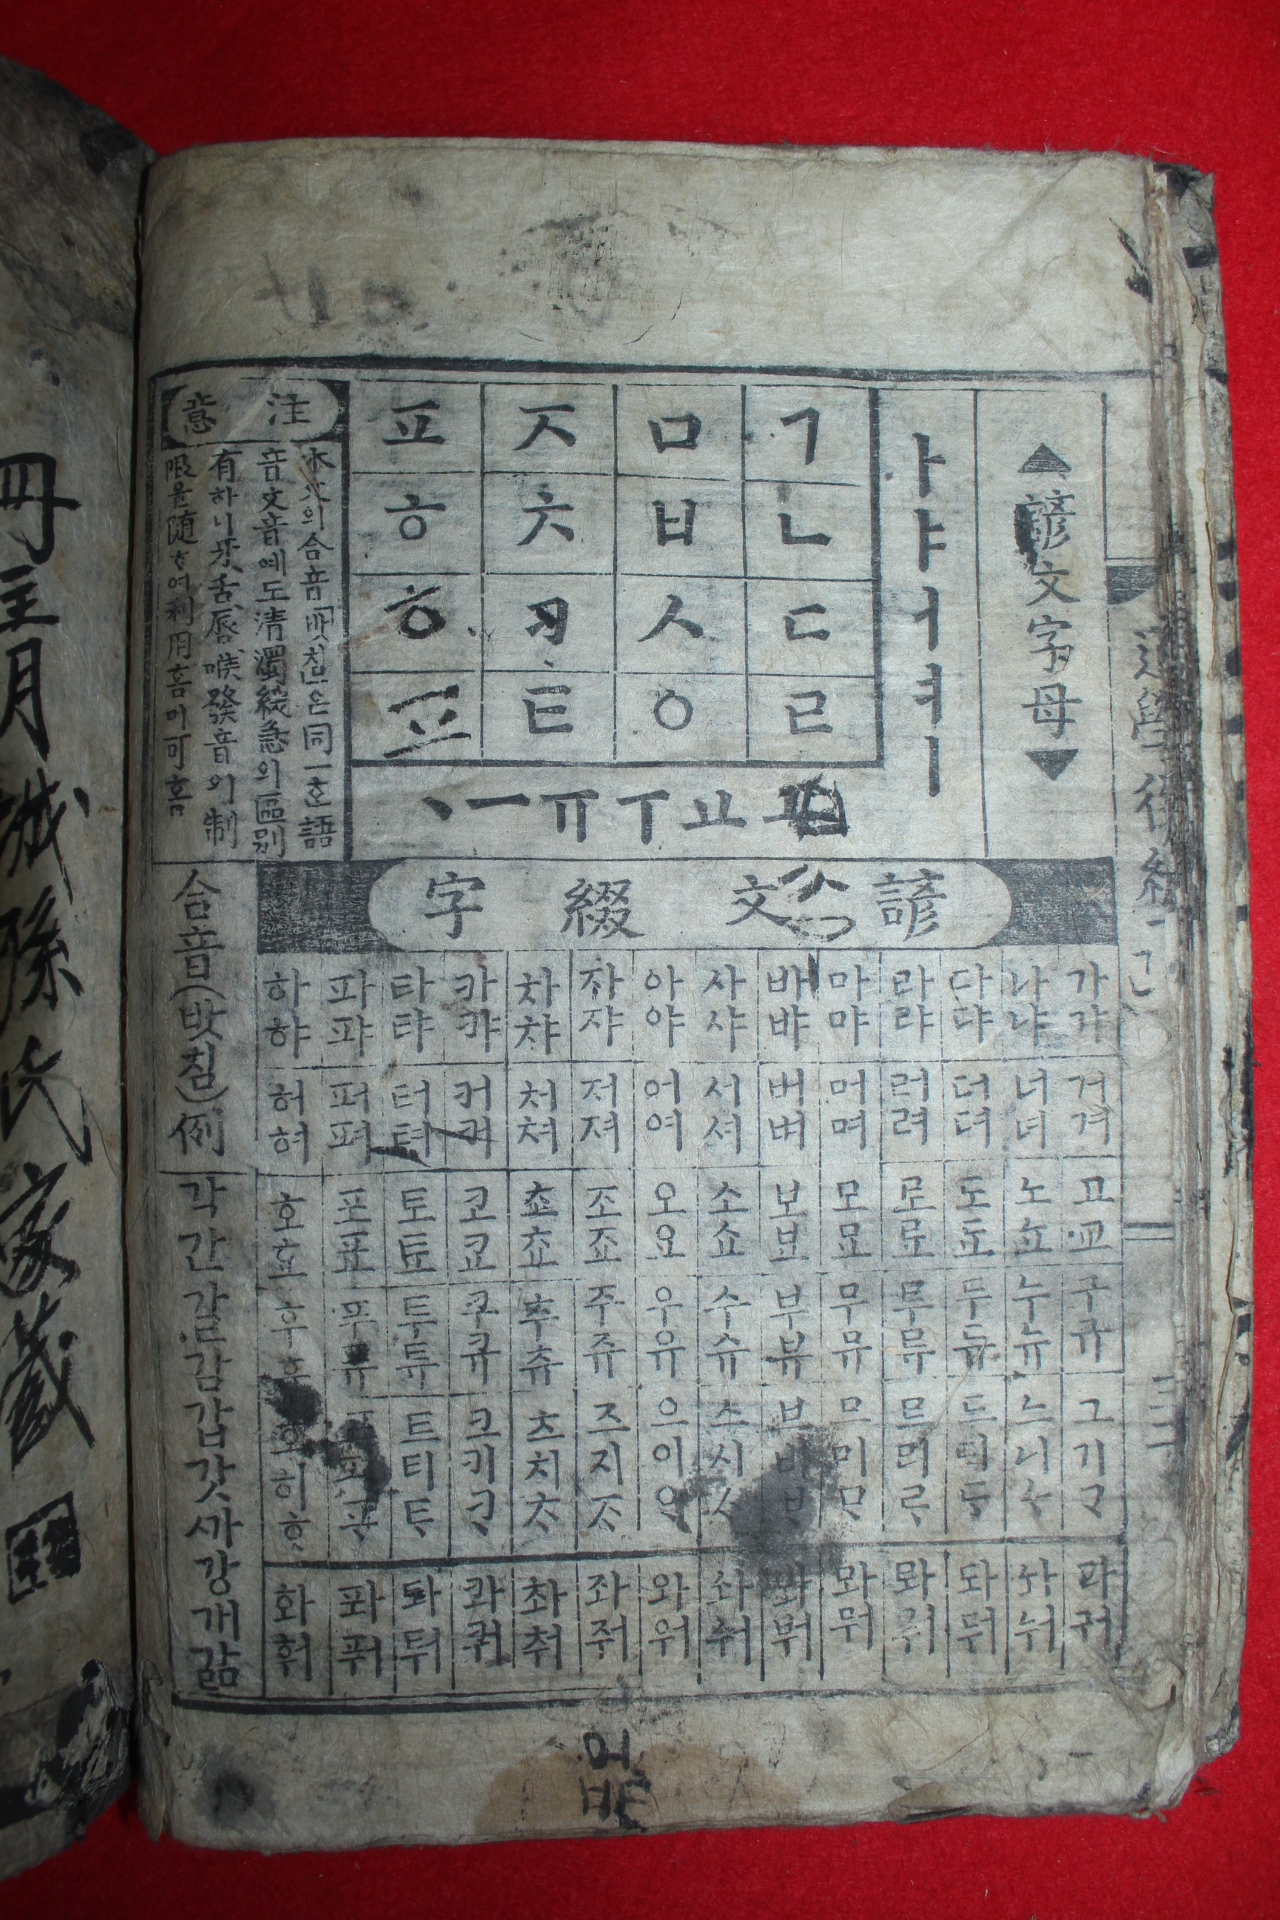 ▲諺文字母▼
ㅏㅑㅓㅕㅣ
ㄱㄴㄷㄹ
ㅁㅂㅅㅇ
ㅈㅊㅋㅌ
ㅍㅎ
ㅛㅜㅠㅡㆍ
注意
本文의合音「밧침」은同一한語
音文音에도淸濁緩急의區別
有하니牙舌唇喉發音의制
限을随하여利用홈이可홈
諺文綴字
가갸 거겨 고교 구규 그기ᄀᆞ 과궈
나냐 너녀 노뇨 누뉴 느니ᄂᆞ 놔눠
다댜 더뎌 도됴 두듀 드디ᄃᆞ 돠둬
라랴 러려 로료 루류 르리ᄅᆞ 롸뤄
마먀 머며 모묘 무뮤 므미ᄆᆞ 뫄뭐
바뱌 버벼 보뵤 부뷰 브비ᄇᆞ 봐붜
사샤 서셔 소쇼 수슈 스시ᄉᆞ 솨숴
아야 어여 오요 우유 으이ᄋᆞ 와워
자쟈 저져 조죠 주쥬 즈지ᄌᆞ 좌줘
차챠 처쳐 초쵸 추츄 츠치ᄎᆞ 촤춰
카캬 커켜 코쿄 쿠큐 크키ᄏᆞ 콰쿼
타탸 터텨 토툐 투튜 트티ᄐᆞ 톼퉈
파퍄 퍼펴 포표 푸퓨 프피ᄑᆞ 퐈풔
하햐 허혀 호효 후휴 흐히ᄒᆞ 화훠
合音(밧침)例
각간갈감갑갓까강개갊
冊主月城孫氏家藏